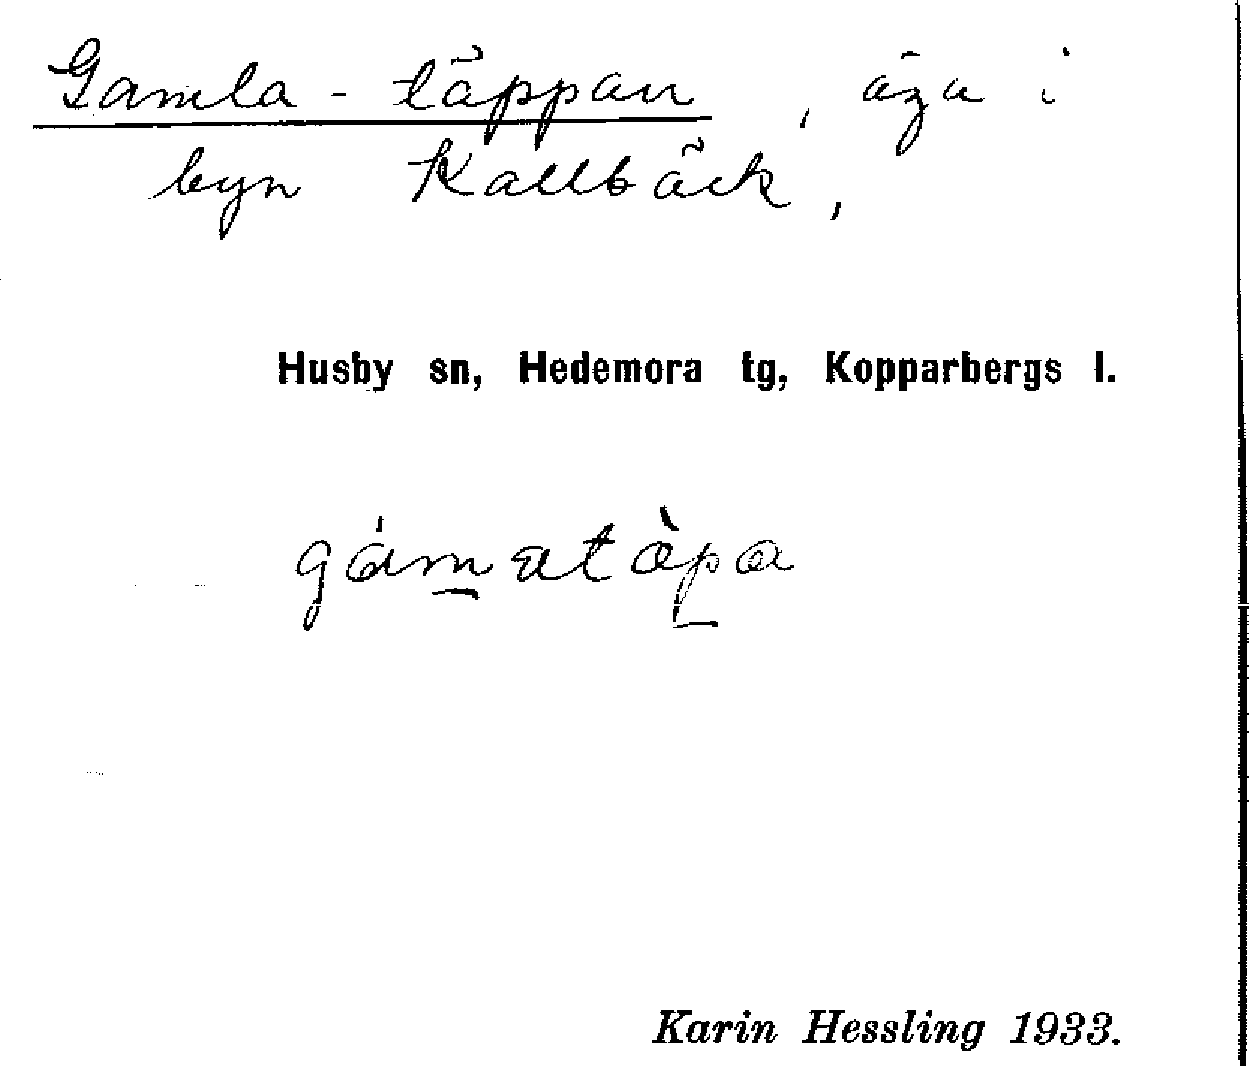 Gamla-täppan, äga i
byn Kallbäck,
Husby sn, Hedemora tg, Kopparbergs l.
gámatàpa
Karin Hessling 1933.